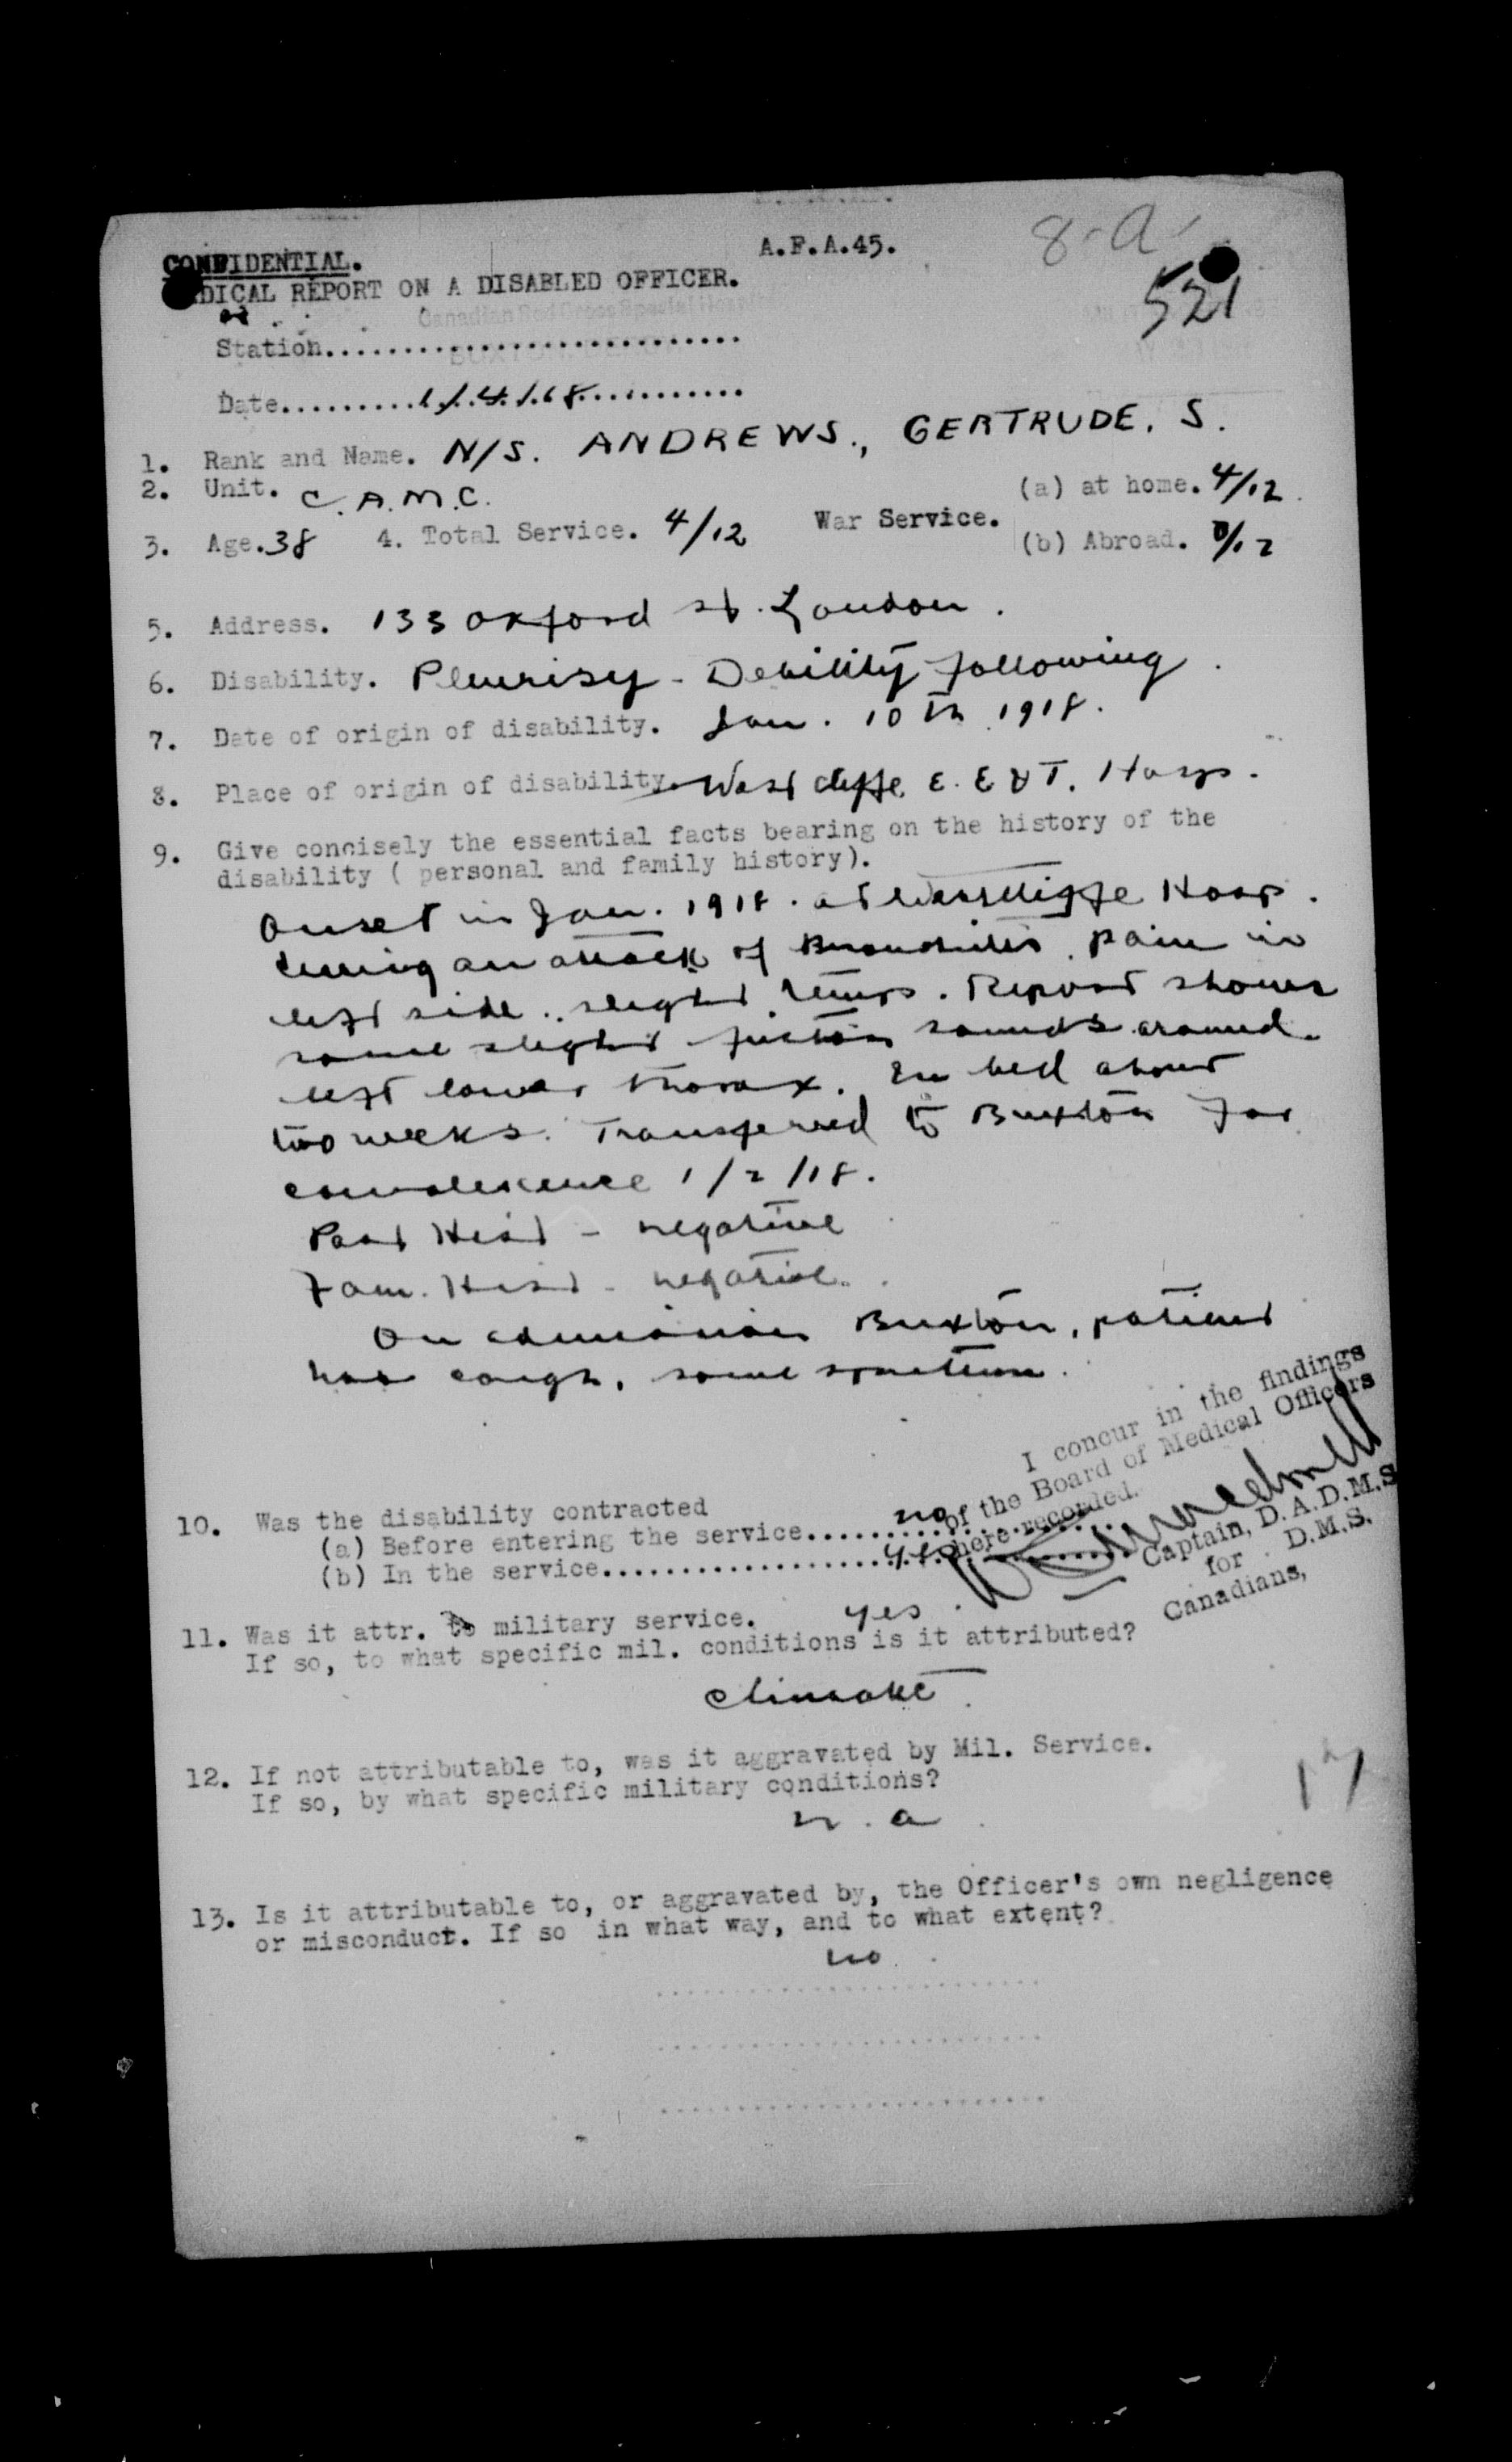 A.F.A.45.
8-a-
CONFIDENTIAL.
DICAL REPORT ON A DISABLED OFFICER.
521
Canadian Red Cross Special
Station.............................
Date.........1/.4./.18............
1. Rank and Name. N/S. ANDREWS., GERTRUDE. S.
2. Unit. C.A.M.C.
(a) at home. 4/12.
3. Age. 38 4. Total Service. 4/12 War Service.
(b) Abroad. /12
5. Address. 133 Oxford St. London.
6. Disability. Pleurisy - Debility following.
7. Date of origin of disability. Jan. 10th 1918.
8. Place of origin of disability. West Cliffe. E. E & T. Hosp.
9. Give concisely the essential facts bearing on the history of the
disability ( personal and family history).
Onset in Jan. 1918. at Westcliffe Hosp.
during an attack of Bronchitis. pain in
left side. slight temp. Report shows
some slight friction sounds around
left lower thorax. In bed about
two weeks. Transferred to Buxton for
convalescence 1/2/18.
Past Hist - negative
Fam. Hist - negative.
On admission Buxton, patient
has cough, some sputum.
I concur in the findings
of the Board of Medical Officers
here recorded.
Captain, D.A.D.M.S
for D.M.S.
Canadians,
10. Was the disability contracted
(a) Before entering the service.......no
(b) In the service...................yes
11. Was it attr. to military service. yes.
If so, to what specific mil. conditions is it attributed?
climate.
12. If not attributable to, was it aggravated by Mil. Service.
If so, by what specific military conditions?
n.a.
17
13. Is it attributable to, or aggravated by, the Officer's own negligence
or misconduct. If so in what way, and to what extent?
no.